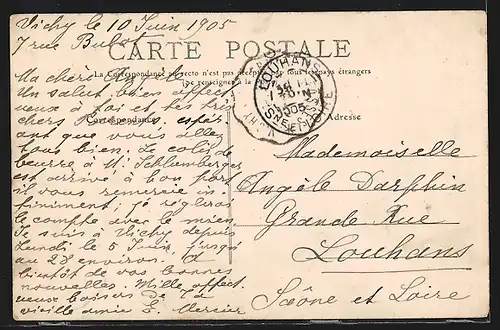 Vichy le 10 Juin 1905
7 rue Bulot
CARTE POSTALE
La Correspondance au recto n'est pas acceptée par tous les pays étrangers
(Se renseigner à la
Correspondance
Adresse
Ma chère
Un salut bien affec
ueux à toi et tes très
chers espér
ant que vous allez
tous bien. Le colis de
beurre à Mr Schlumberger
est arrivé à bon port
il vous remercie in
finiment; je règlerai
le compte avec le mien
Je suis à Vichy depuis
Lundi le 5 Juin, jusqu'
au 28 environ. A
bientôt de vos bonnes
nouvelles. Mille affect
ueux baisers de ta
vieille amie E. Mercier
LOUHANS
1905
SNE ET LOIRE
Mademoiselle
Angèle Darphin
Grande Rue
Louhans
Saône et Loire